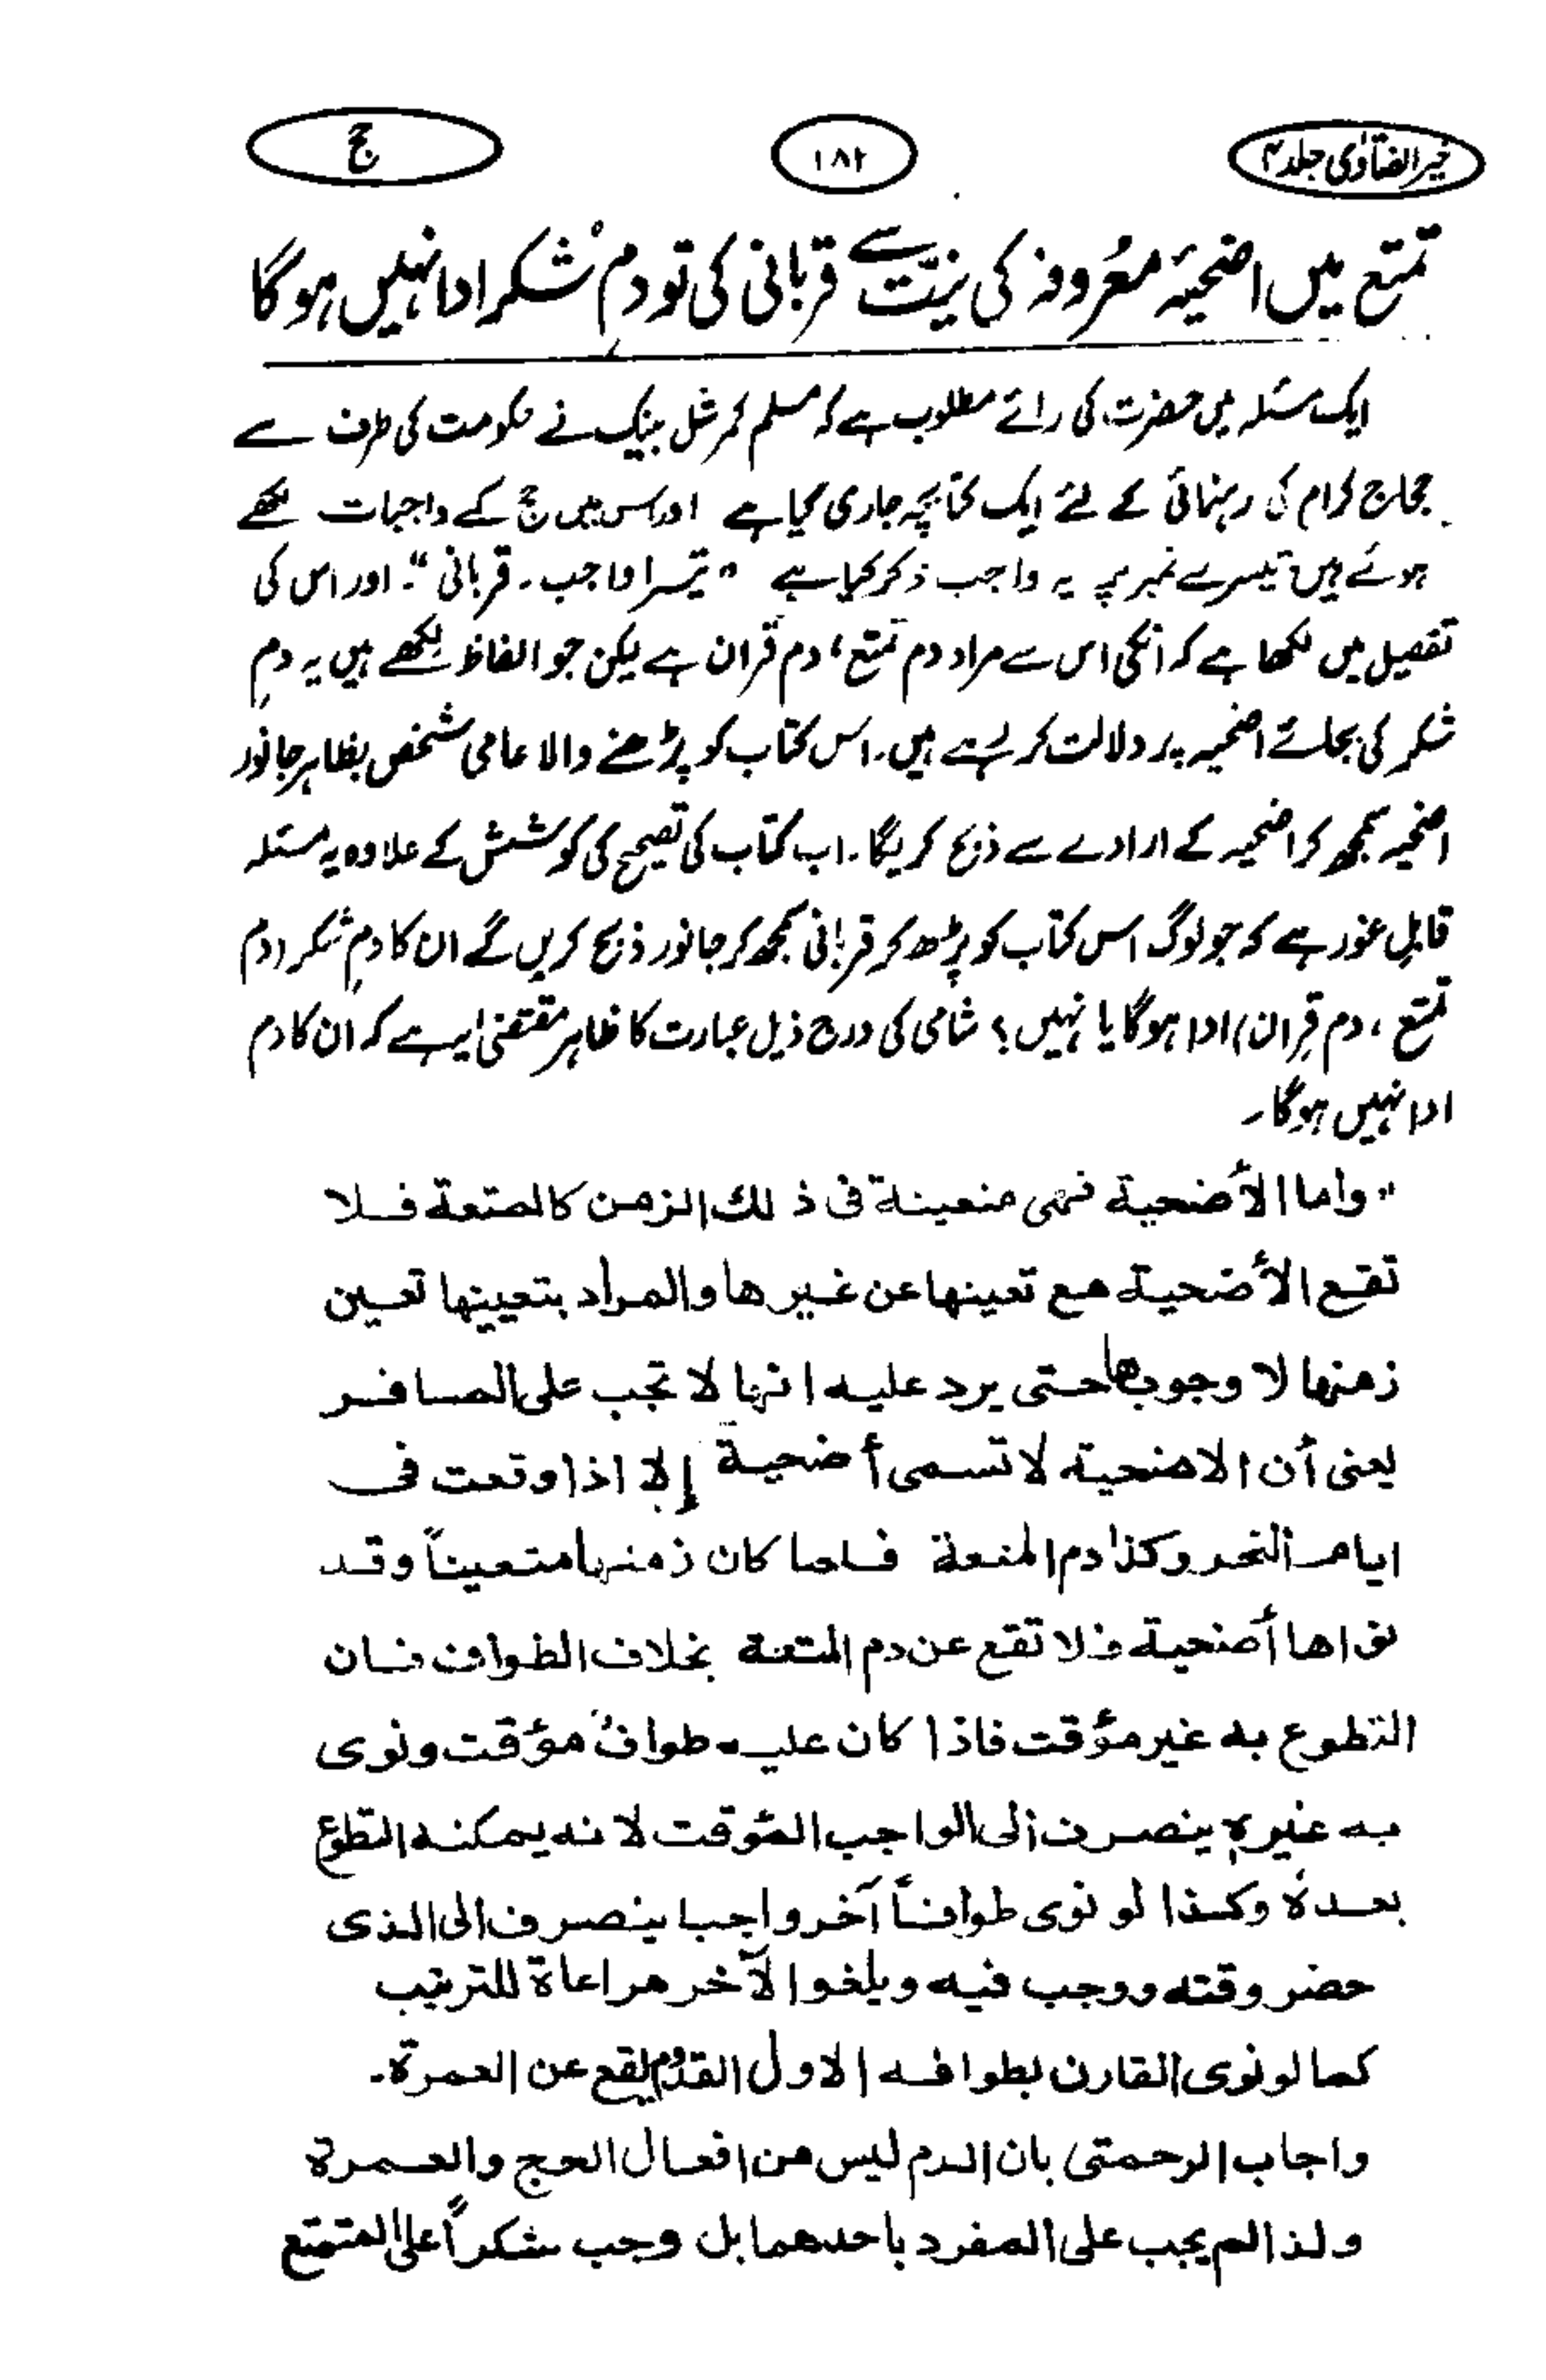 خیر الفتاوٰی جلد ۴
۱۸۲
حج
تمتع میں اضحیۂ معروفہ کی نیّت سے قربانی کی تو دمِ شکر ادا نہیں ہوگا
ایک مسئلہ میں حضرت کی رائے مطلوب ہے کہ مسلم کمرشل بینک نے حکومت کی طرف سے
حجاج کرام کی رہنمائی کے لئے ایک کتابچہ جاری کیا ہے اور اس میں حج کے واجبات لکھے
ہوئے ہیں تیسرے نمبر پر یہ واجب ذکر کیا ہے " تیسرا واجب ۔ قربانی "۔ اور اس کی
تفصیل میں لکھا ہے کہ انکی اس سے مراد دم تمتع، دم قران ہے لیکن جو الفاظ لکھے ہیں یہ دمِ
شکر کی بجائے اضحیہ پر دلالت کر رہے ہیں۔ اس کتاب کو پڑھنے والا عامی شخص بظاہر جانور
اضحیہ سمجھ کر اضحیہ کے ارادے سے ذبح کریگا۔ اب کتاب کی تصحیح کی کوشش کے علاوہ یہ مسئلہ
قابلِ غور ہے کہ جو لوگ اس کتاب کو پڑھ کر قربانی سمجھ کر جانور ذبح کریں گے ان کا دمِ شکر (دم
تمتع ، دم قِران) ادا ہوگا یا نہیں؟ شامی کی درج ذیل عبارت کا ظاہر مقتضیٰ یہ ہے کہ ان کا دم
ادا نہیں ہوگا۔
"واما الأضحية فهى متعينة فى ذلك الزمن كالمتعة فلا
تقع الأضحية مع تعينها عن غيرها والمراد بتعيينها تعين
زمنها لا وجوبها حتى يرد عليه انها لا تجب على المسافر
يعنى أن الاضحية لا تسمى أضحية إلا اذا وقعت فى
ايام النحر وكذا دم المتعة فلما كان زمنها متعيناً وقد
نواها أضحية فلا تقع عن دم المتعة بخلاف الطواف فان
التطوع به غير مؤقت فاذا كان عليه طوافٌ مؤقت ونوى
به غيره ينصرف الى الواجب المؤقت لانه يمكنه التطوع
بعدهٗ وكذا لو نوى طوافاً آخر واجبا ينصرف الى الذى
حضر وقته ووجب فيه ويلغو الآخر مراعاة للترتيب
كما لو نوى القارن بطوافه الاول القدوم يقع عن العمرة۔
واجاب الرحمتى بان الدم ليس من افعال الحج والعمرة
ولذا لم يجب على المفرد باحدهما بل وجب شكراً على المتمتع